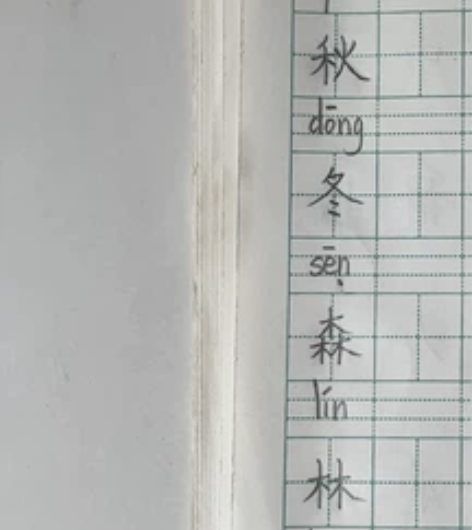 秋
dōng
冬
sēn
森
lín
林